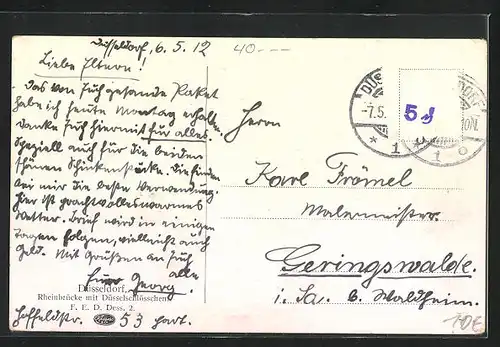 Düsseldorf, 6.5.12
40.---
Liebe Eltern!
Das von Euch gesandte Paket
habe ich heute Montag erhalten
danke Euch hiermit für alles.
Speziell auch für die beiden
schönen Schinkenstücke. Die finden
bei mir die beste Verwendung.
Hier ist prachtvolles warmes
Wetter. Brief wird in einigen
Tagen folgen, vielleicht auch
Geld. Mit Grüßen an Euch
alle
Euer Georg.
Düsseldorf,
Rheinbrücke mit Düsselschlösschen
F. E. D. Dess. 2.
53 part.
-7.5.
5 d
* 1
Herrn
Karl Frömel
Malermeister.
Geringswalde.
i. Sa. b. Waldheim.
10E